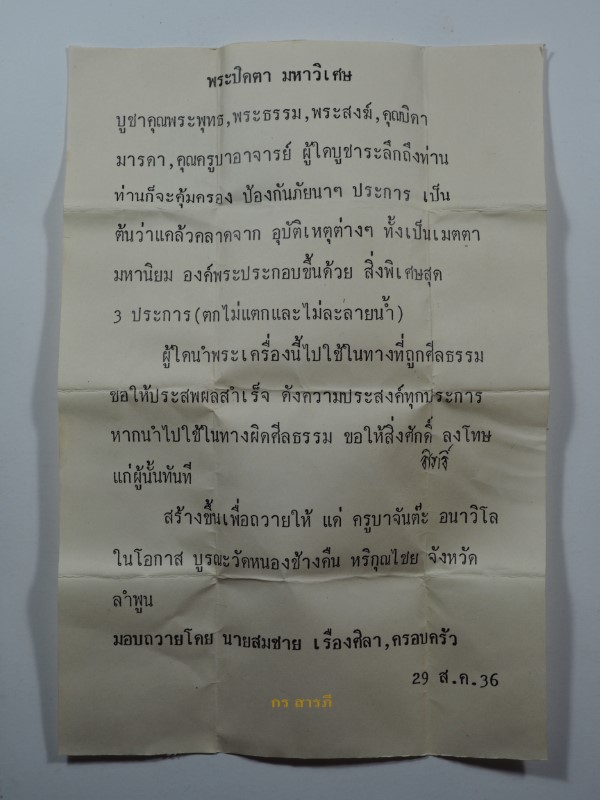 พระปิดตา มหาวิเศษ
บูชาคุณพระพุทธ,พระธรรม,พระสงฆ์,คุณบิดา
มารดา,คุณครูบาอาจารย์ ผู้ใดบูชาระลึกถึงท่าน
ท่านก็จะคุ้มครอง ป้องกันภัยนาๆ ประการ เป็น
ต้นว่าแคล้วคลาดจาก อุบัติเหตุต่างๆ ทั้งเป็นเมตตา
มหานิยม องค์พระประกอบขึ้นด้วย สิ่งพิเศษสุด
3 ประการ(ตกไม่แตกและไม่ละลายน้ำ)
ผู้ใดนำพระเครื่องนี้ไปใช้ในทางที่ถูกศีลธรรม
ขอให้ประสพผลสำเร็จ ดังความประสงค์ทุกประการ
หากนำไปใช้ในทางผิดศีลธรรม ขอให้สิ่งศักดิ์ ลงโทษ
สิทธิ์
แก่ผู้นั้นทันที
สร้างขึ้นเพื่อถวายให้ แด่ ครูบาจันต๊ะ อนาวิโล
ในโอกาส บูรณะวัดหนองช้างคืน หริกุญไชย จังหวัด
ลำพูน
มอบถวายโดย นายสมชาย เรืองศิลา,ครอบครัว
29 ส.ค.36
กร สารภี